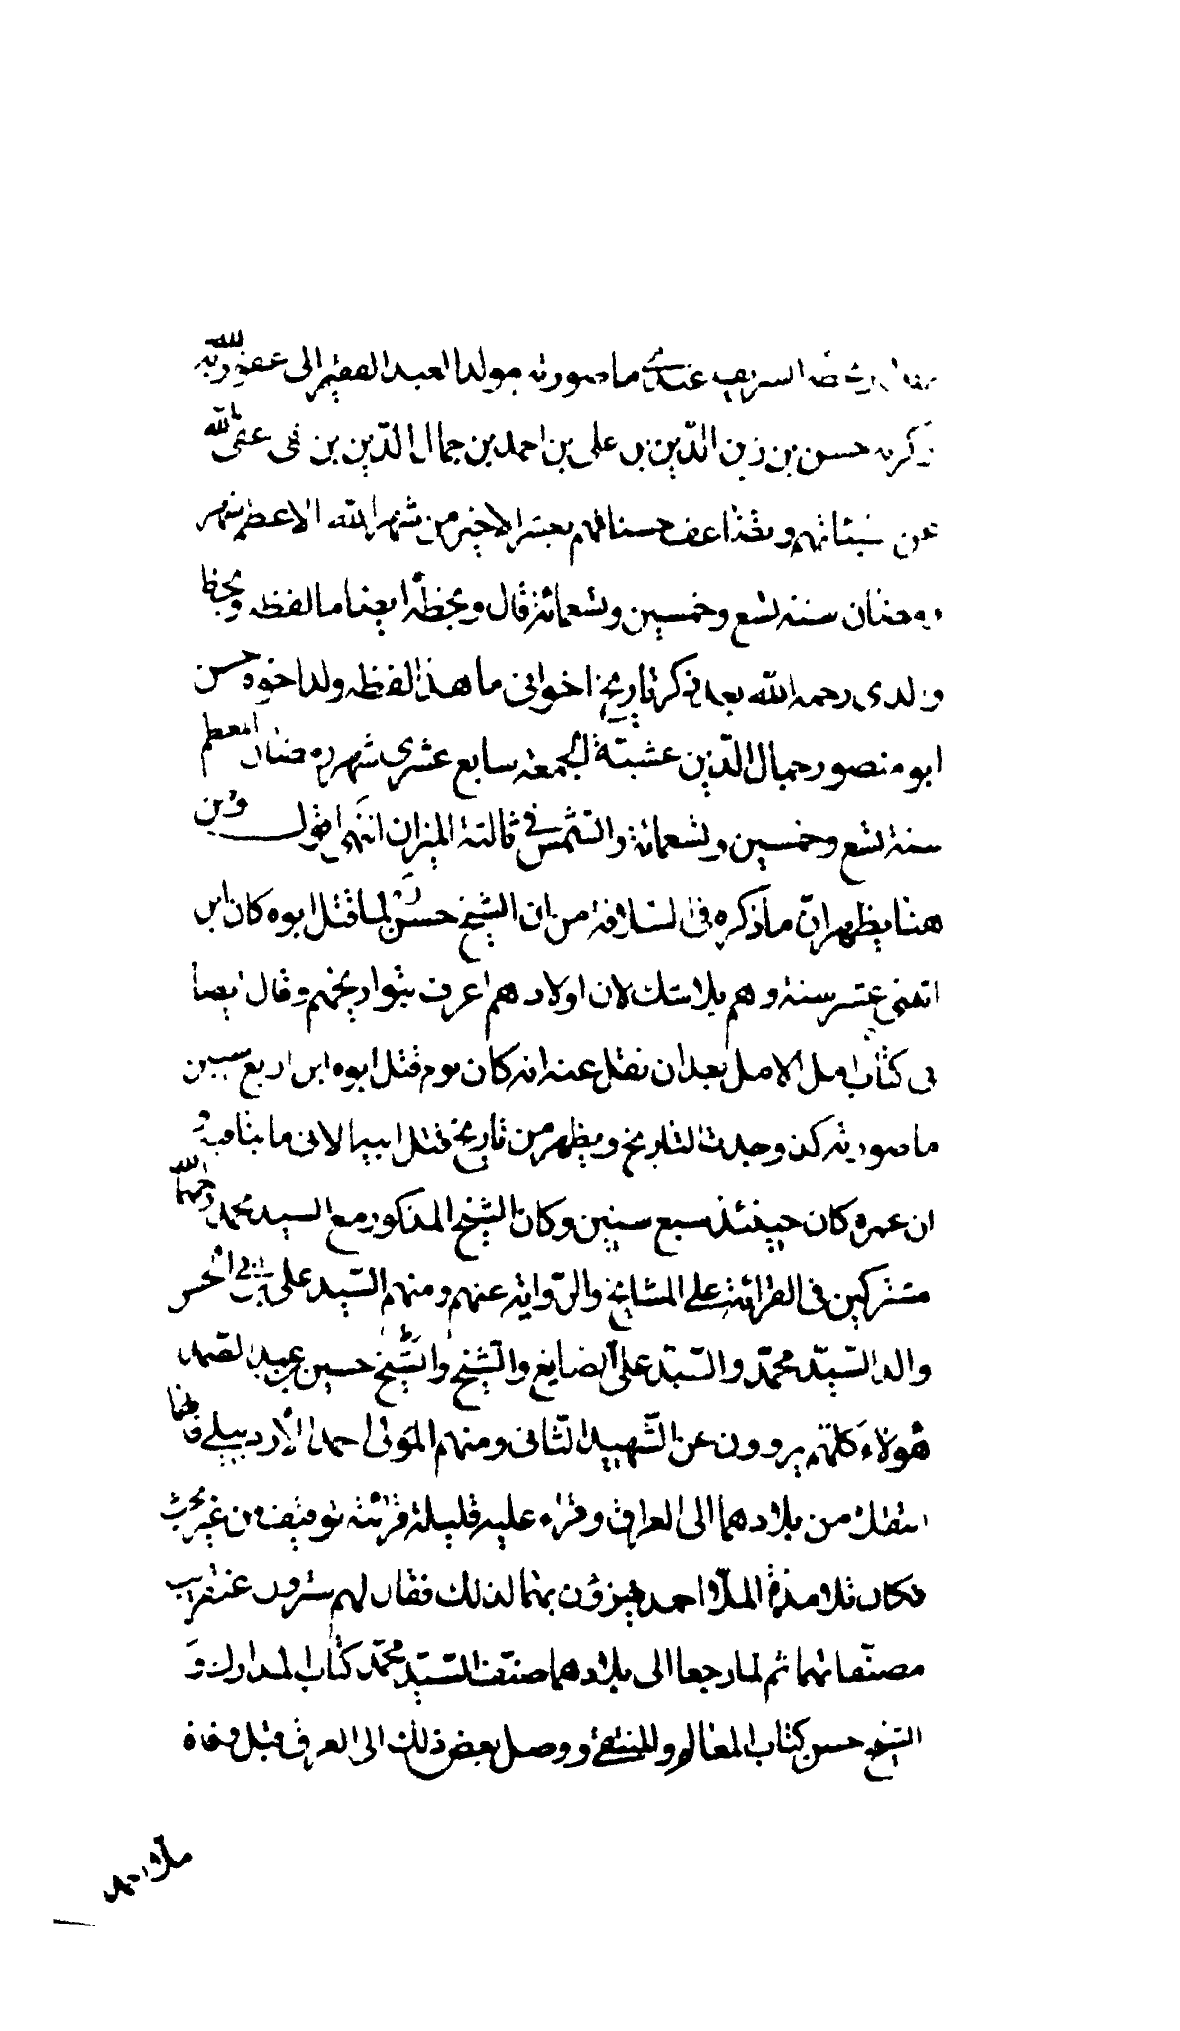 بخطه الشريف عندي ما صورته مولد العبد الفقير الى عفو الله ربه
وكرمه حسن بن زين الدّين بن على بن احمد بن جمال الدّين بن تقى عفى الله
عن سيئاتهم وضاعف حسناتهم بعشر الاخير من شهر الله الاعظم شهر
رمضان سنة تسع وخمسين وتسعمائة قال وبخطه ايضا ما لفظه وبخط
والدى رحمه الله بعد ذكر تاريخ اخواتى ما هذا لفظه ولد اخوه حسن
ابو منصور جمال الدّين عشيّة الجمعة سابع عشرى شهر رمضان المعظم
سنة تسع وخمسين وتسعمائة والشّمس فى ثالثة الميزان انتهى اقول ومن
هنا يظهر انّ ما ذكره فى السلافة من ان الشيخ حسن لما قتل ابوه كان ابن
اثنى عشر سنة وهم بلا شك لان اولادهم اعرف بتواريخهم وقال ايضا
فى كتاب امل الامل بعد ان نقل عنه انه كان يوم قتل ابوه ابن اربع سنين
ما صورته كذا وجدت التاريخ ويظهر من تاريخ قتل ابيه الاتى ما ينافيه
ان عمره كان حينئذ سبع سنين وكان الشيخ المذكور مع السيد محمد رحمهما الله
مشتركين فى القرائة على المشايخ والرّواية عنهم ومنهم السّيد على بن ابى الحسن
والد السّيّد محمّد والسّيّد على الصايغ والشّيخ والشّيخ حسين بن عبد الصمد
هؤلاء كلّهم يروون عن الشّهيد الثّانى ومنهم المولى احمد الأردبيلى فانهما
انتقلا من بلادهما الى العراق وقراء عليه قليلة قرائة توقيف من غير بحث
فكان تلامذة الملّا احمد يهزؤن بهما لذلك فقال لهم سترون عنقريب
مصنّفاتهما ثم لما رجعا الى بلادهما صنّف السّيّد محمّد كتاب المدارك و
الشيخ حسن كتاب المعالم والمنتقى ووصل بعض ذلك الى العراق قبل وفاة
ملا احمد